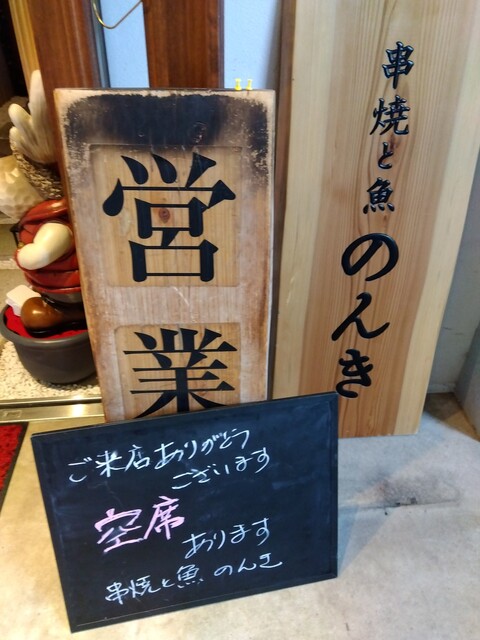 串焼と魚
のんき
営業
ご来店ありがとう
ございます
空席
あります
串焼と魚 のんき